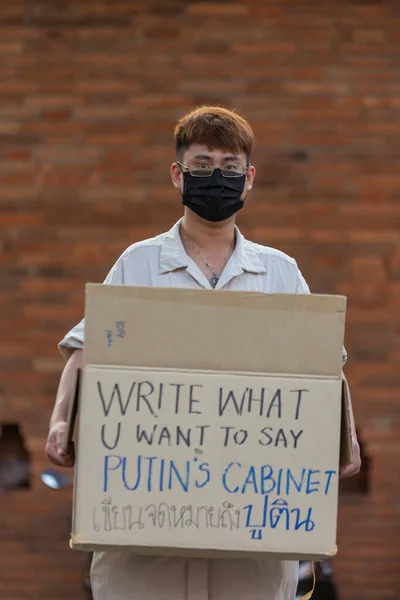 WRITE WHAT
U WANT TO SAY
PUTIN'S CABINET
เขียนจดหมายถึง ปูติน